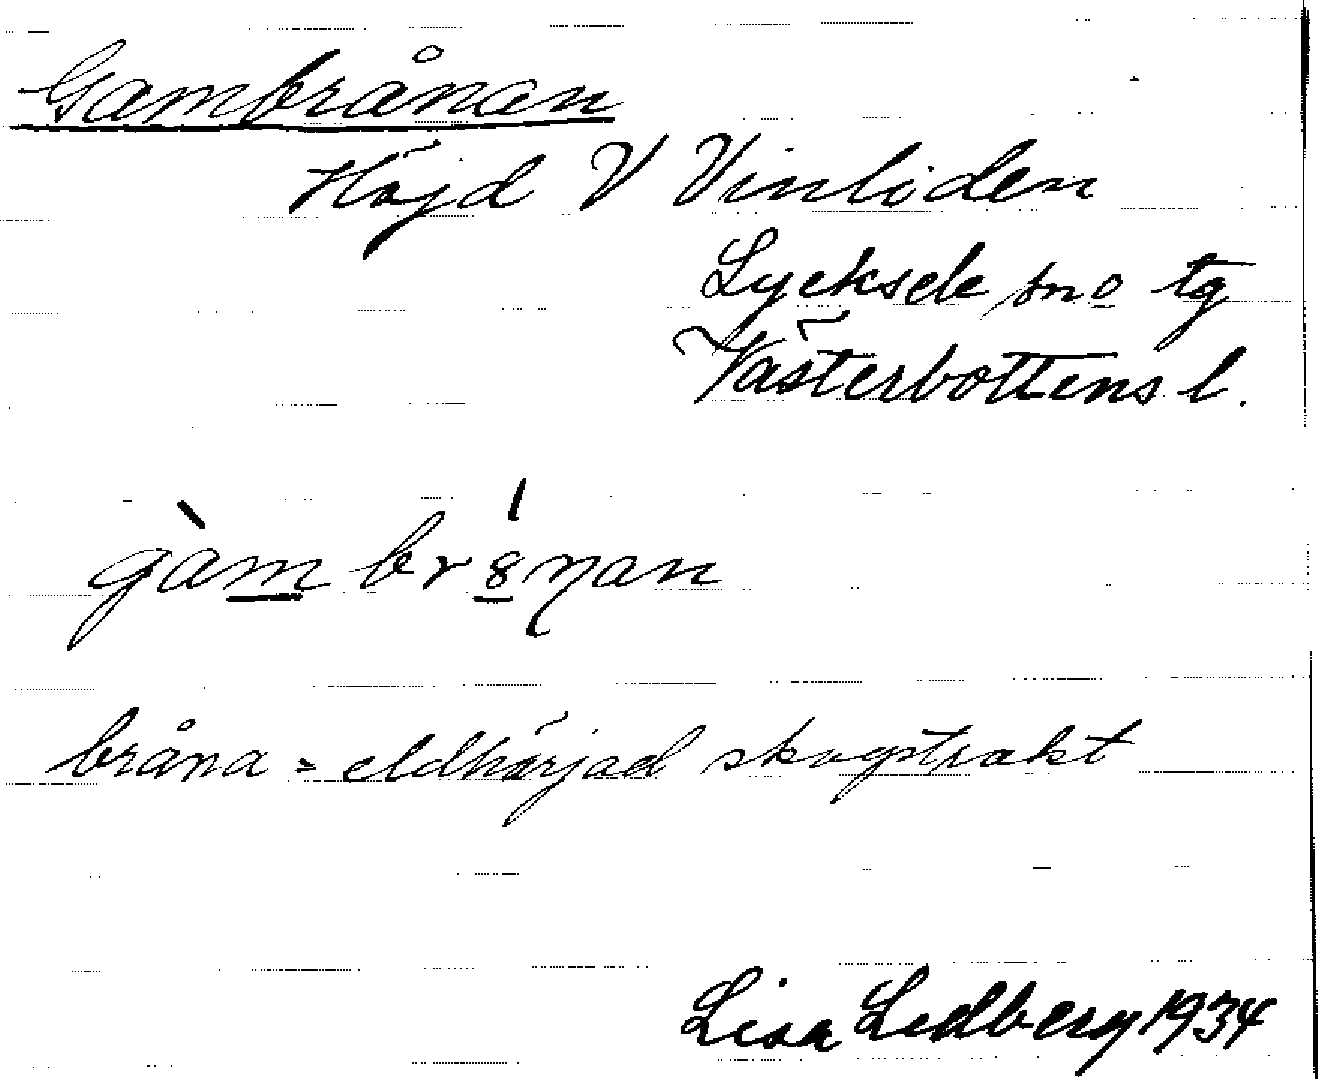 Gambrånan
Höjd V Vinliden
Lycksele sn o tg
Västerbottens l.
gàm br8́ŋan
bråna = eldhärjad skogstrakt
Lisa Lidberg 1934